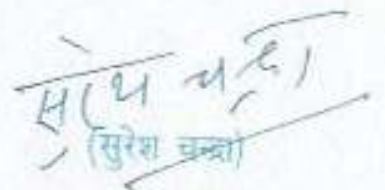 सुरेश चन्द्रा
(सुरेश चन्द्रा)